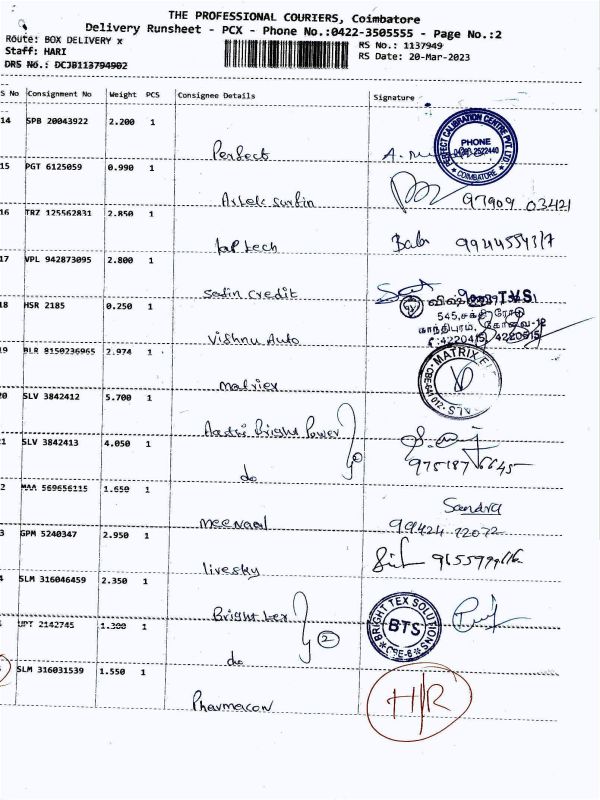 THE PROFESSIONAL COURIERS, Coimbatore
Delivery Runsheet - PCX - Phone No.:0422-3505555 - Page No.:2
Route: BOX DELIVERY x
RS No.: 1137949
Staff: HARI
RS Date: 20-Mar-2023
DRS No.: DCJB113794902
S No Consignment No Weight PCS Consignee Details Signature
14 SPB 20043922 2.200 1
Perfect
PERFECT CALIBRATION CENTRE PVT. LTD.
PHONE
2522440
COIMBATORE
15 PGT 6125059 0.990 1
Ashok
97909 03421
16 TRZ 125562831 2.850 1
tap tech Babu
17 VPL 942873095 2.800 1
Credit
T.V.S.
545,சக்தி ரோடு
காந்திபுரம், கோவை-12
:4220415, 4220615
18 HSR 2185 0.250 1
Vishnu Auto
19 BLR 8150236965 2.974 1
matrix
MATRIX
20 SLV 3842412 5.700 1
Bright Power
21 SLV 3842413 4.050 1
do
2 MAA 569656115 1.650 1
meenaal
Sandra
99424 72072
3 GPM 5240347 2.950 1
livesky
4 SLM 316046459 2.350 1
Bright tex
BRIGHT TEX SOLUTIONS
BTS
CBE-6
UPT 2142745 1.300 1
do
2
SLM 316031539 1.550 1
Pharmacon
H/R